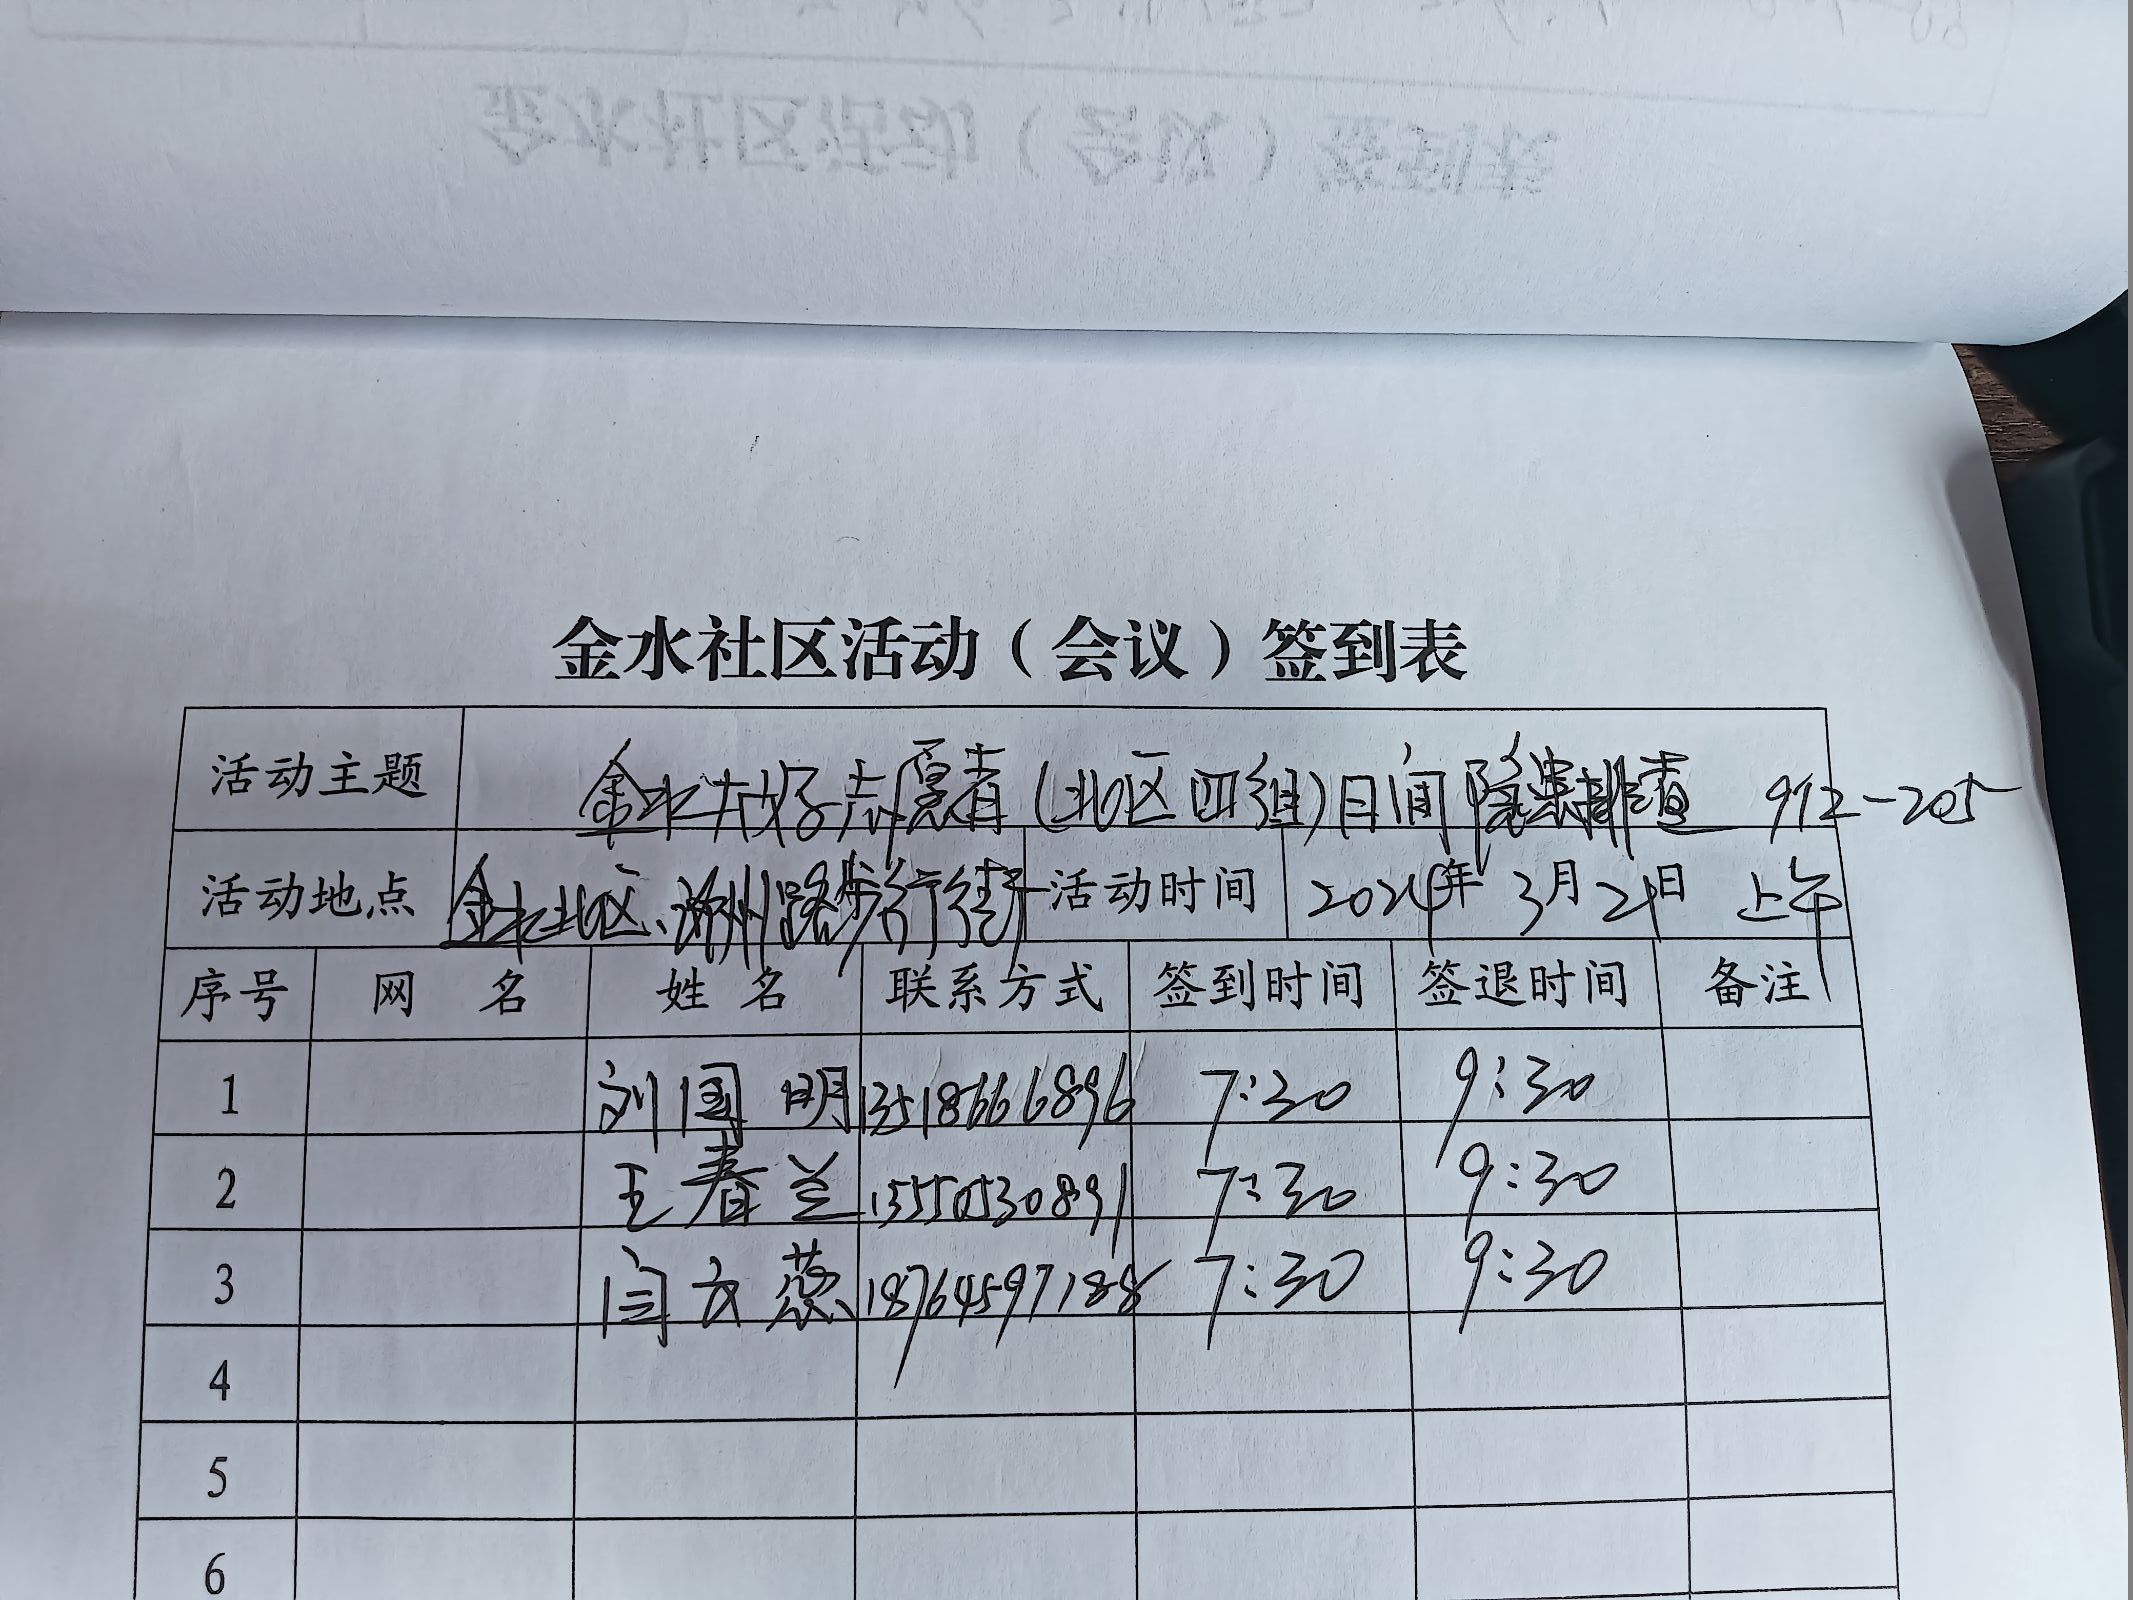 金水社区活动（会议）签到表
活动主题 金水友好志愿者(北区四组)日间隐患排查 912-205
活动地点 金水北区、 州路步行街 活动时间 2024年3月21日 上午
序号 网 名 姓 名 联系方式 签到时间 签退时间 备注
1 刘国明 13518666896 7:30 9:30
2 王春兰 13551530891 7:30 9:30
3 闫文蕊 18764597188 7:30 9:30
4
5
6